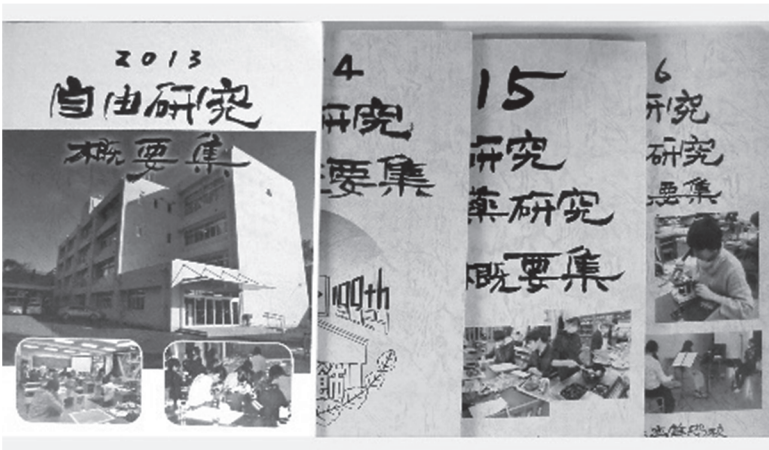 2013
自由研究
概要集
4
研究
要集
'99th
15
研究
薬研究
概要集
6
研究
研究
要集